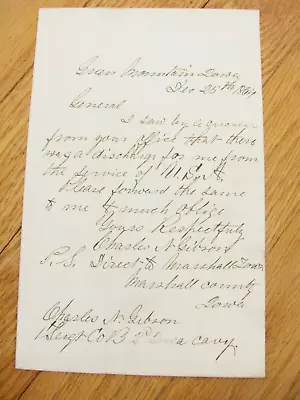 Green Mountain Iowa
Dec 25th 1864
General
I saw by a
from your office that there
was a discharge for me from
the service of U.S.A.
Please forward the same
to me & much oblige
Yours Respectfully
Charles N. Gibson
P.S. Direct to Marshalltown
Marshall county
Iowa
Charles N. Gibson
1 Sergt Co B 2 Iowa cavy.